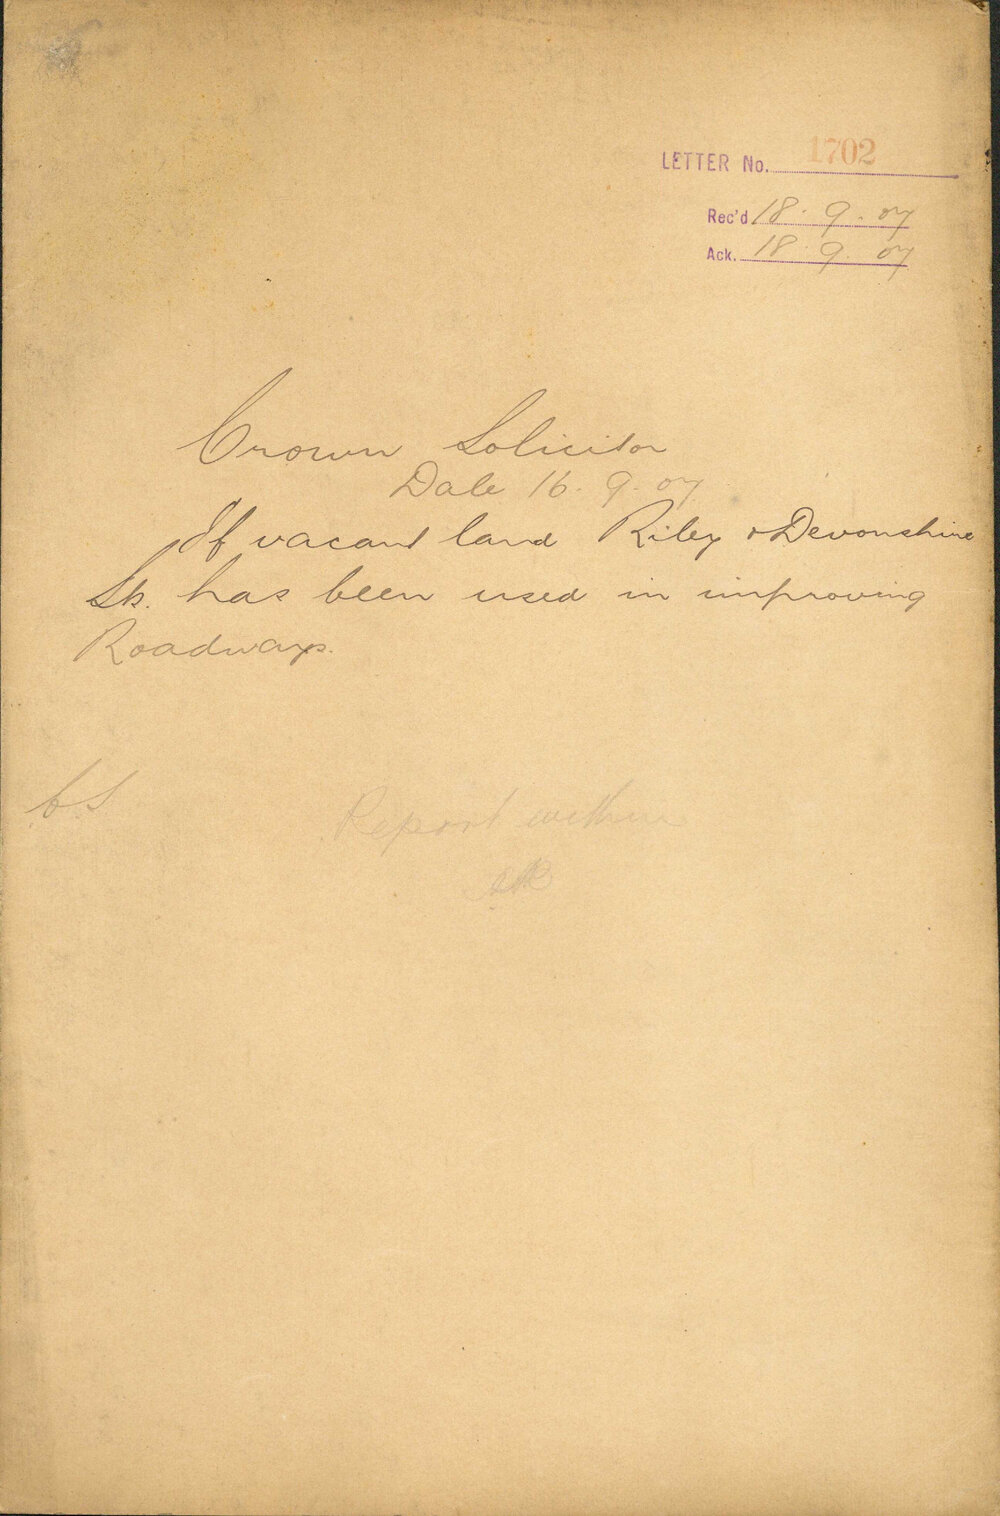 LETTER No. 1702
Rec'd 18. 9. 07
Ack. 18. 9. 07
Crown Solicitor
Date 16. 9. 07
If vacant land Riley & Devonshire
Sts. has been used in improving
Roadways.
CS
Report within